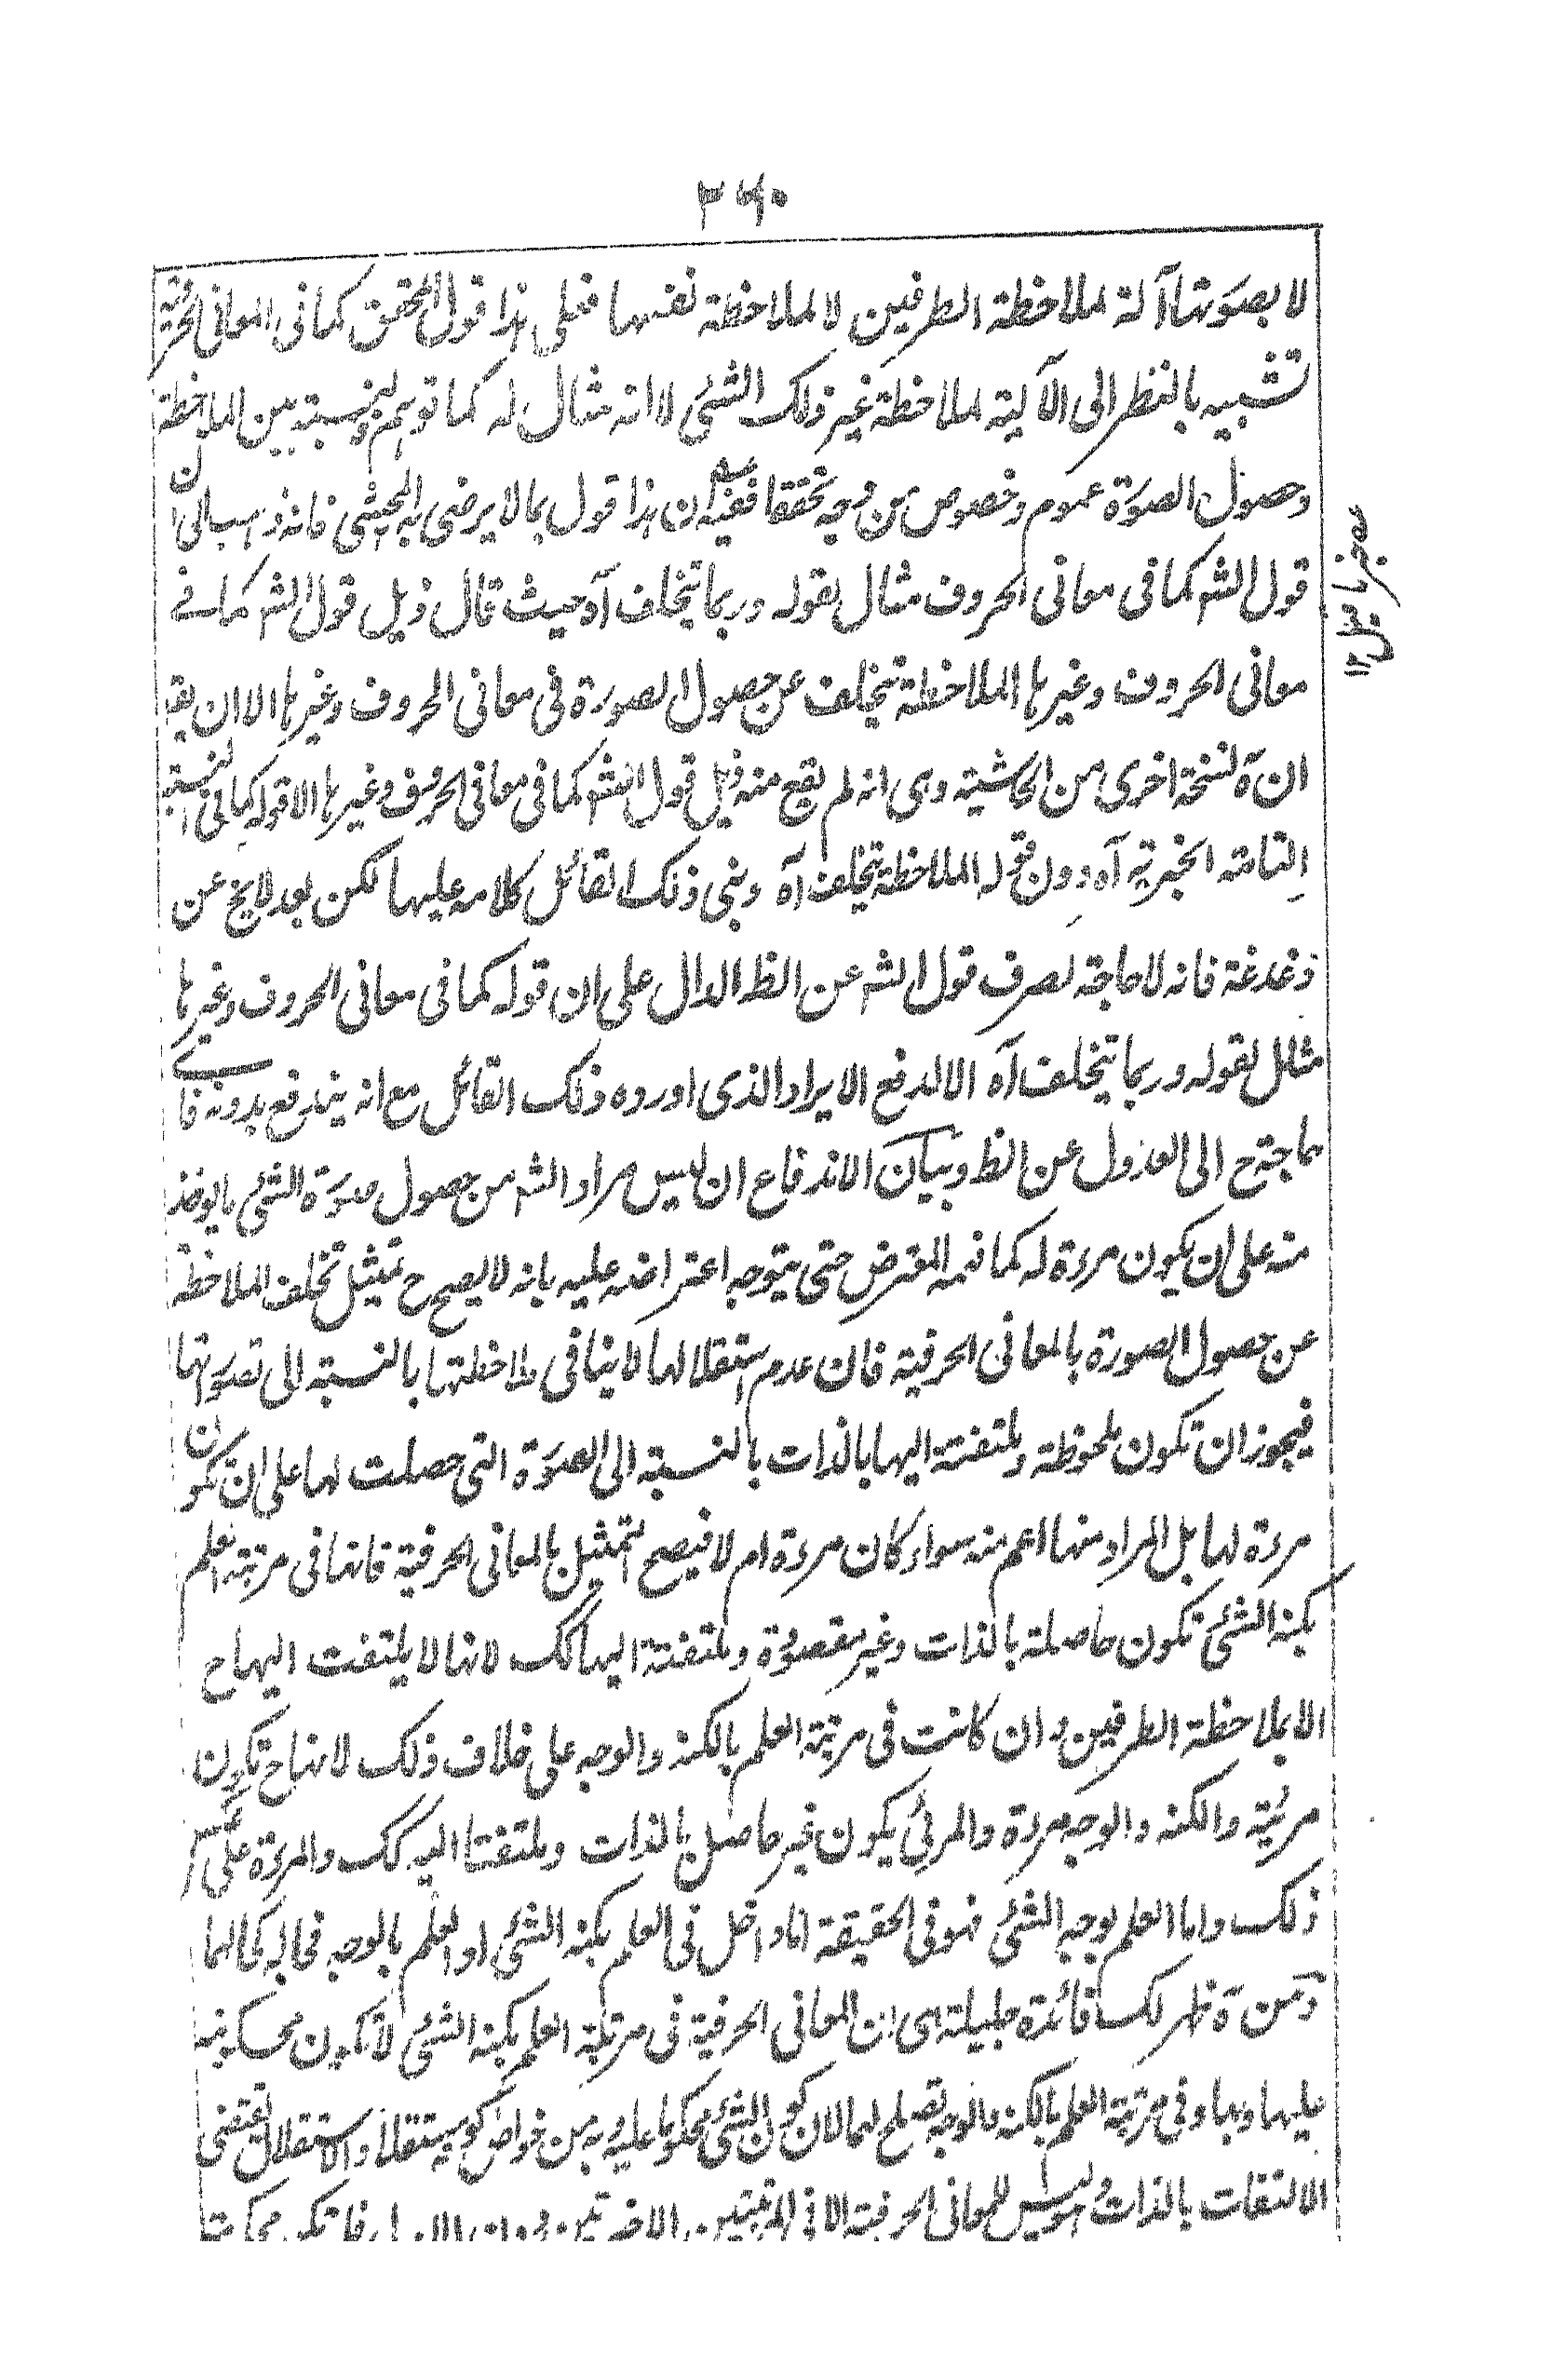 ٣٦٠
لا بصورتها آلة لملاحظة الطرفين لا لملاحظة نفسها فعلى هذا قول المحقق كما فى المعانى الحرفية
تشبيه بالنظر الى الآلية لملاحظة غير ذلك الشئ لا انه مثال له كما توهم والنسبة بين الملاحظة
وحصول الصورة عموم وخصوص من وجه تحققا ففيه ان هذا قول بما لا يرضى به المحشى فانه ذهب الى ان
قول الشـ كما فى معانى الحروف مثال لقوله وربما يتخلف آه حيث قال ذيل قول الشـ كما فى
معانى الحروف وغيرها الملاحظة تتخلف عن حصول الصورة فى معانى الحروف وغيرها الا ان يقـ
ان ة نسخة اخرى من الحاشية وهى انه لم يقع منه ذيل قول الشـ كما فى معانى الحروف وغيرها الا قوله كما فى النسبة
التامة الخبرية آه دون قوله الملاحظة تتخلف آه وبنى ذلك القائل كلامه عليها لكن بعد لا يخ عن
دغدغة فانه لا حاجة لصرف قول الشـ عن الظ الدال على ان قوله كما فى معانى الحروف وغيرها
مثال لقوله وربما يتخلف آه الا لدفع الايراد الذى اورده ذلك القائل مع انه يندفع بدونه فاى
حاجة ح الى العدول عن الظ وبيان الاندفاع ان ليس مراد الشـ من حصول صورة الشئ ما يوخذ
منه على ان يكون مرءة له كما فهمه المعترض حتى يتوجه اعتراضه عليه بانه لا يصح ح تمثيل تخلف الملاحظة
عن حصول الصورة بالمعانى الحرفية فان عدم استقلالها لا ينافى ملاحظتها بالنسبة الى تصوراتها
فيجوز ان تكون ملحوظة وملتفتة اليها بالذات بالنسبة الى الصورة التى حصلت لها على ان تكون
مرءة لها بل المراد منها اعم منه سواء كان مرءة ام لا فيصح التمثيل بالمعانى الحرفية فانها فى مرتبة العلم
بكنه الشئ تكون حاصلة بالذات وغير مقصودة وملتفتة اليها كك لانها لا يلتفت اليها ح
الا بملاحظة الطرفين وان كانت فى مرتبة العلم بالكنه والوجه على خلاف ذلك لانها ح تكون
مرئية والكنه والوجه مرءة والمرئى يكون غير حاصل بالذات وملتفتا اليه كك والمرءة على عكس
ذلك واما العلم بوجه الشئ فهو فى الحقيقة اما داخل فى العلم بكنه الشئ او العلم بالوجه فحاله كحالهما
ومن ة ظهر لك فائدة جليلة هى ان المعانى الحرفية فى مرتبة العلم بكنه الشئ لا تكون محكومة
عليها وبها وفى مرتبة العلم بالكنه والوجه تصلح لهما لان كون الشئ محكوما عليه وبه من خواص كونه مستقلا والاستقلال يقتضى
الالتفات بالذات وليس للمعانى الحرفية الا فى المرتبتين الاخيرتين دون